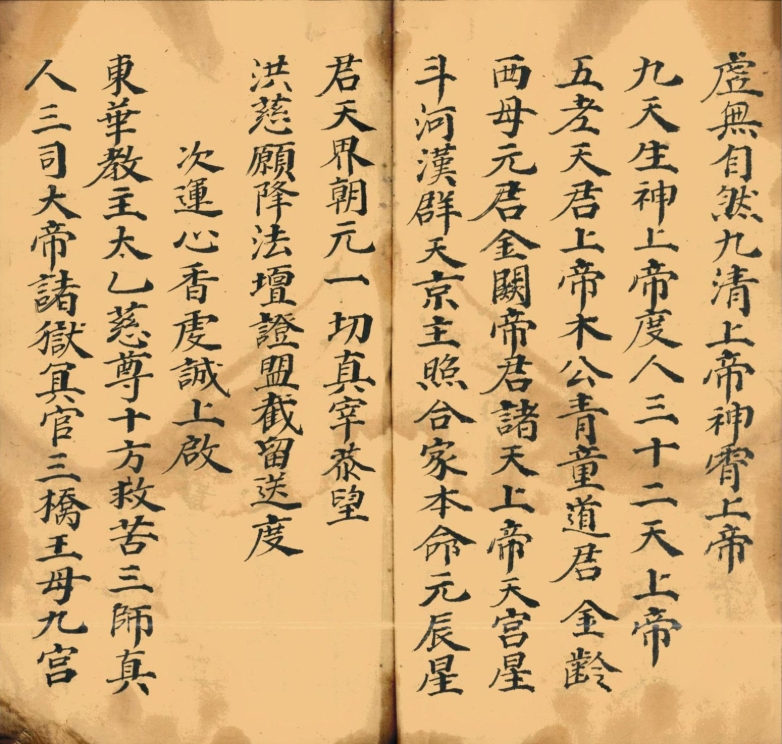 虛無自然九清上帝神霄上帝
九天生神上帝度人三十二天上帝
五老天君上帝木公青童道君金齡
西母元君金闕帝君諸天上帝天宮星
斗河漢群天京主照合家本命元辰星
君天界朝元一切真宰恭望
洪慈願降法壇證盟截留送度
次運心香虔誠上啟
東華教主太乙慈尊十方救苦三師真
人三司大帝諸獄冥官三橋王母九宮